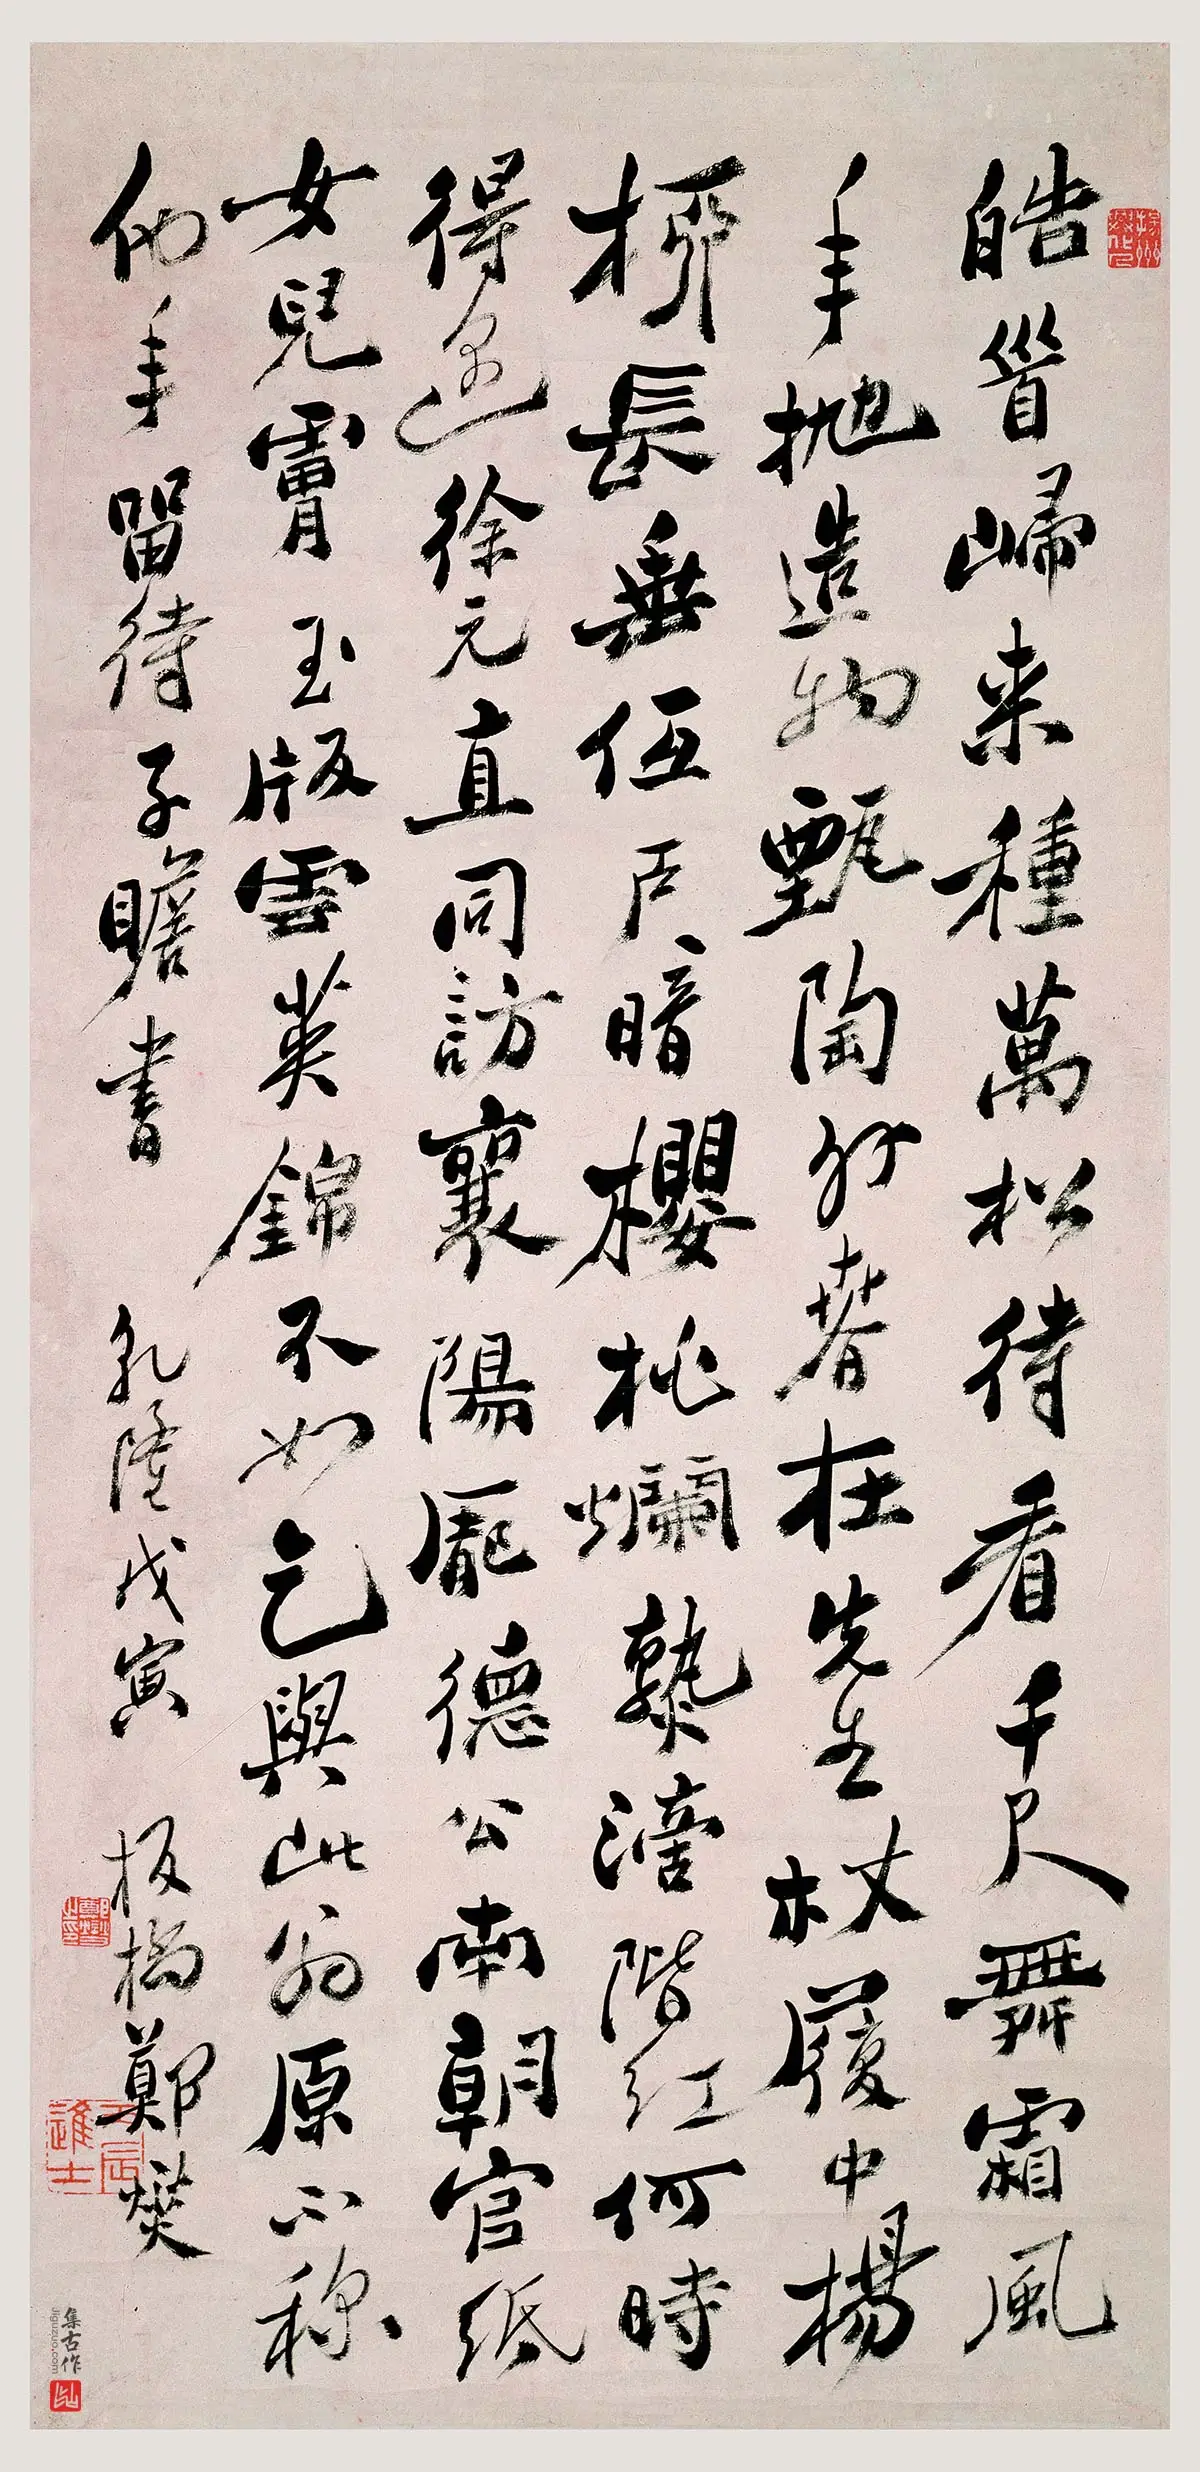 皓首歸来種萬松待看千尺舞霜風
年抛造物甄陶外春在先生杖履中楊
柳長垂低户暗櫻桃爛熟滴階紅何時
得遇徐元直同訪襄陽龐德公南朝官紙
女兒膚玉版雲英錦不如乞與此翁原不称
他年留待子瞻書
乾隆戊寅
板橋鄭燮
集古作
jiguzuo.com